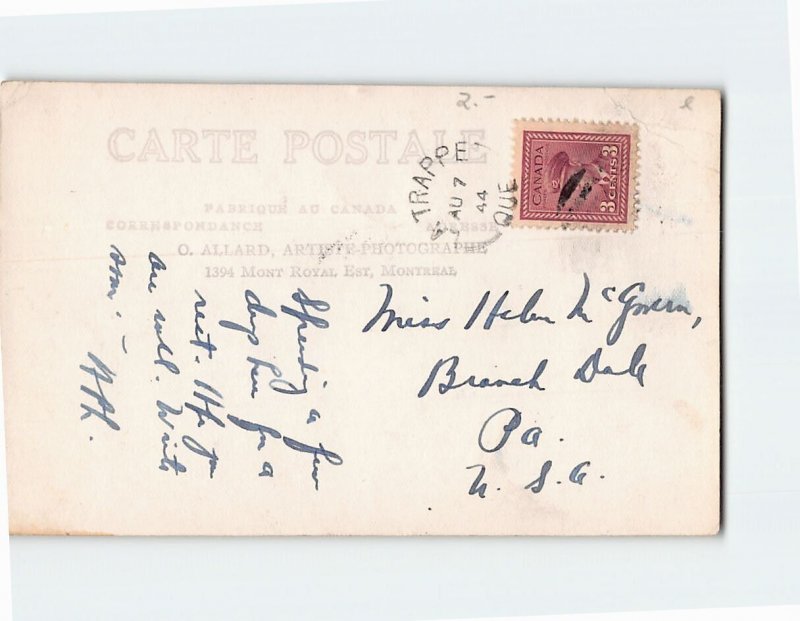 2.-
e
CARTE POSTALE
FABRIQUÉ AU CANADA
CORRESPONDANCE ADRESSE
O. ALLARD, ARTISTE-PHOTOGRAPHE
1394 MONT ROYAL EST, MONTREAL
TRAPPE
AU 7
44
QUE
CANADA
3 CENTS 3
Spending a few
days here for a
rest. Hope you
are well. Write
soon. –
Miss Helen McGovern,
Branch Dale
Pa.
U. S. A.